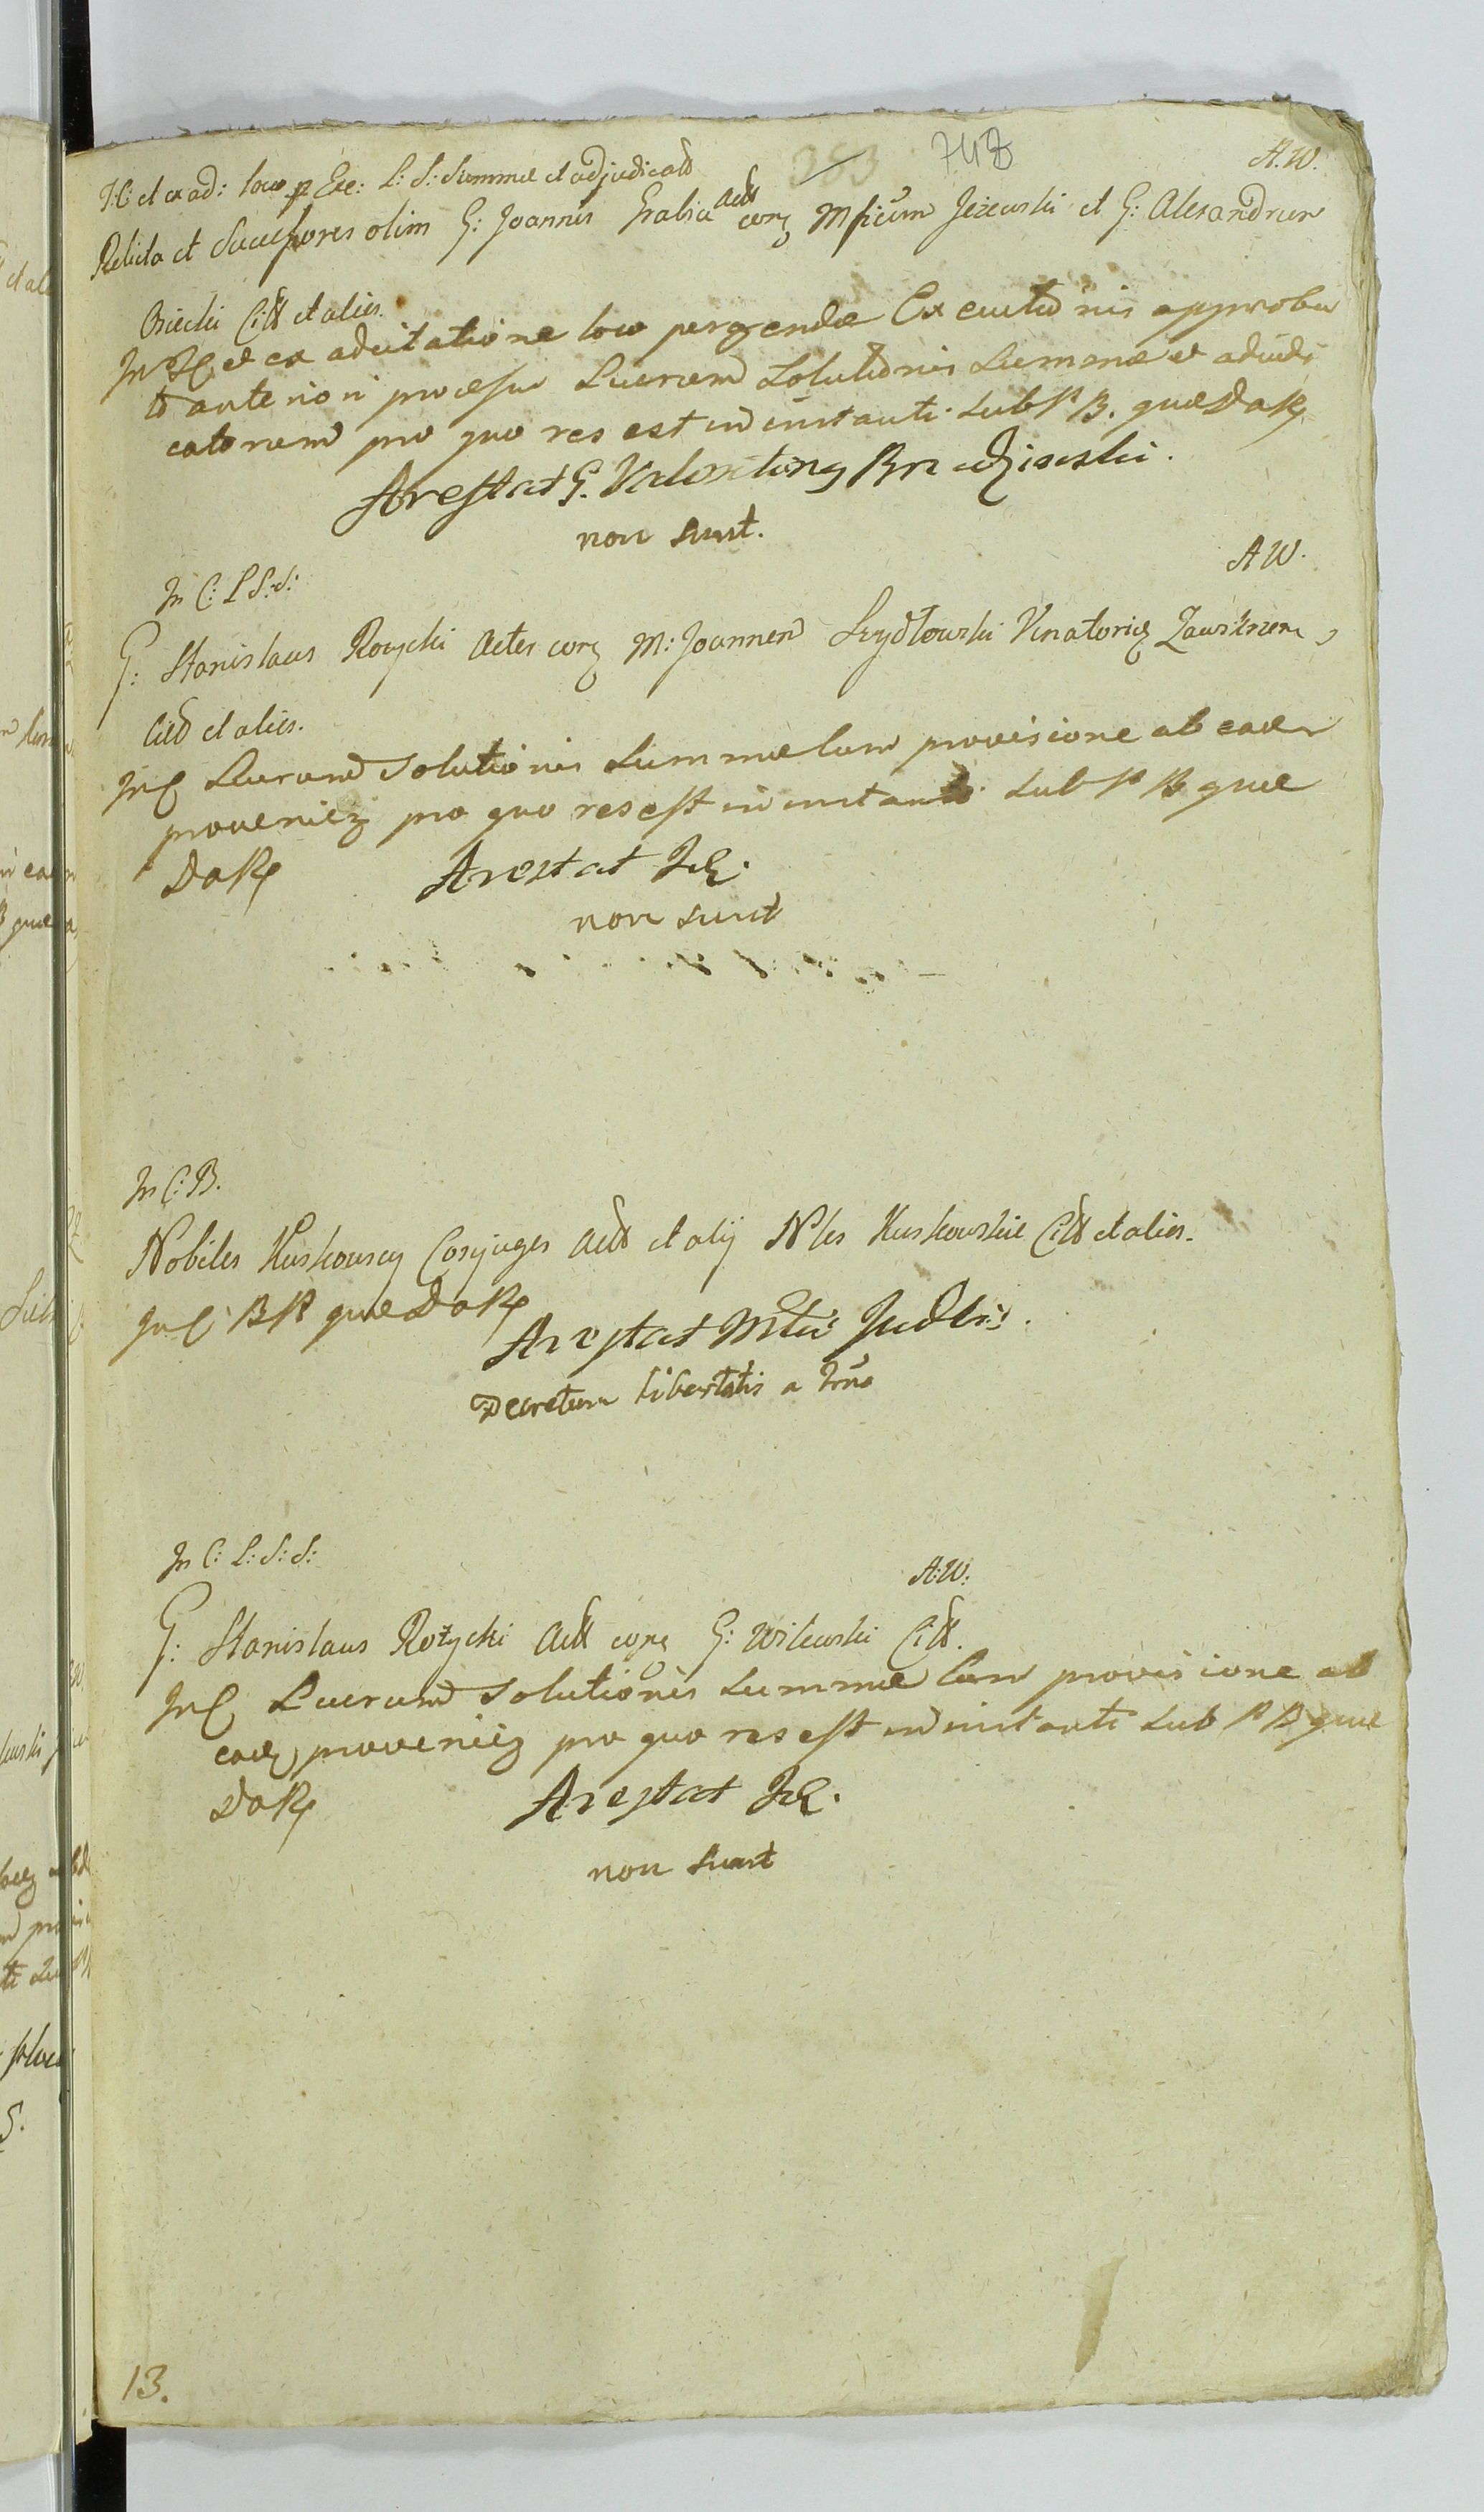 383 748
A. W.
I: C: et ex ad: loco p Exe: L: S: Summæ et adjudicatd
Relicta et Successores olim G: Joannis Grabia Actt corg Mficum Jeżewski et G: Alexandrum
Osiecki Citt et alios.
In JC et ex adcitatione loco pergendæ Executionis approba
to anteriori processu Lucrand Solutionis Summæ et adiudi
catorum pro quo res est in instanti sub P B. quæ Do Rx
Arestat G. Valentinq Brudziewski.
non sunt.
In C: L S: S:
A W.
G: Stanislaus Rozycki Actor corg M: Joannem Szydłowski Venatorig Zawskrzen,
Citt et alios.
In C Lucrand Solutionis Summæ cum provisione ab eade
proveniez pro quo res est in instanti Sub P B quæ
Do Rx Arestat IE.
non sunt
In C: B.
Nobiles Kuskowscy Conjuges Actt et alij N les Kuskowskie Citt et alios.
In C B P quæ Do Rx
Arestat Mtu Judli:
Decretum libertatis a Trno
In C: L: S: S:
A: W:
G: Stanislaus Rożycki Actt corg G: Wilewski Citt.
In C Lucrand Solutionis Summæ cum provisione ab
eade proveniez pro quo res est in instanti Sub P B quæ
Do Rx Arestat IE.
non sunt
13.